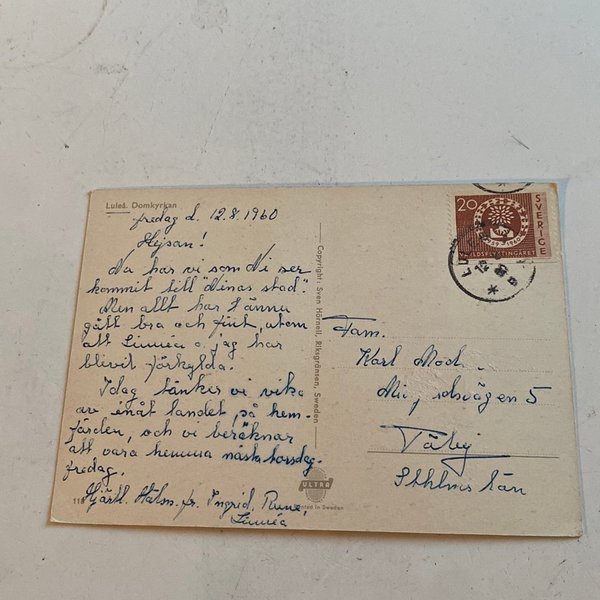 Luleå. Domkyrkan
fredag d. 12.8.1960
Hejsan!
Nu har vi som Ni ser
kommit till "Ninas stad".
Men allt har ännu
gått bra och fint, utom
att Linnéa o. jag har
blivit förkylda.
Idag tänker vi vika
av inåt landet, på hem-
färden, och vi beräknar
att vara hemma nästa torsdag-
fredag.
Hjärtl. Häls. fr. Ingrid, Rune,
Linnéa
118
Copyright: Sven Hörnell, Riksgränsen, Sweden
ULTRA
Printed in Sweden
20
SVERIGE
VÄRLDSFLYKTINGÅRET
1959-1960
Fam.
Karl Mod
5
Täby
Sthlms län